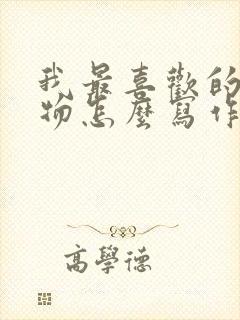 我最喜歡的
物怎麼寫作
高學德